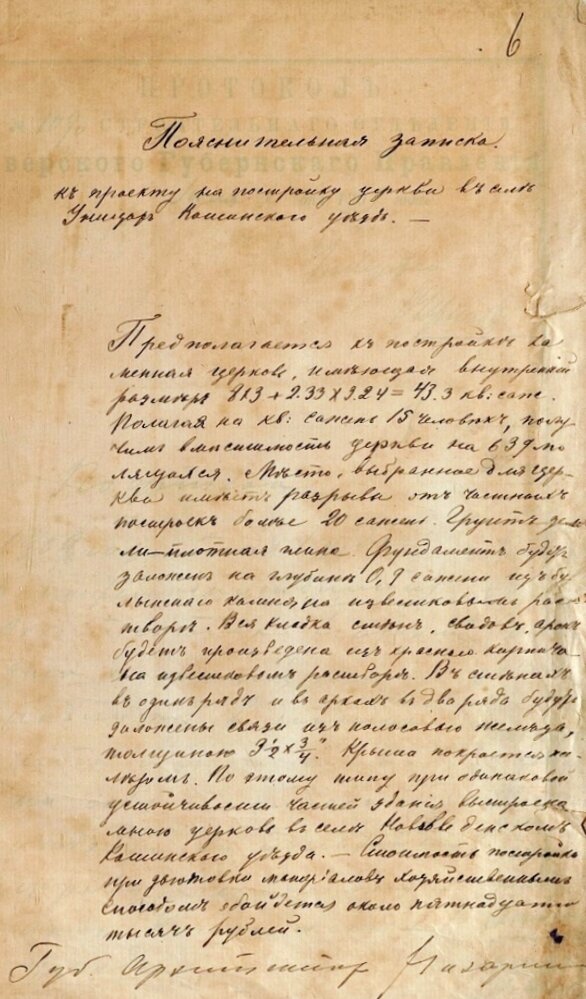 6
ПРОТОКОЛЪ
Пояснительная записка.
къ проекту на постройку церкви въ селѣ
Кашинскаго уѣзда. —
Предполагается къ постройкѣ ка
менная церковь, имѣющая внутренній
размѣръ 8х3 + 2.33 х 3.24 = 43.3 кв: саж.
Полагая на кв: сажень 15 человѣкъ, полу
чимъ вмѣстимость церкви на 639 мо
лящихся. Мѣсто, выбранное для цер-
кви имѣетъ разрывы отъ частныхъ
построекъ болѣе 20 сажень. Грунтъ зем
ли — плотная глина. Фундаментъ будетъ
заложенъ на глубинѣ 0,9 сажени изъ бу
лыжнаго камня на известковомъ рас
творѣ. Вся кладка стѣнъ, сводовъ, арокъ
будетъ произведена изъ краснаго кирпича
на известковомъ растворѣ. Въ стѣнахъ
въ одинъ рядъ и въ аркахъ въ два ряда будутъ
заложены связи изъ полосоваго желѣза,
толщиною 3½ х ¾". Крыша покроется же
лѣзомъ. По этому типу при одинаковой
устойчивости частей зданія выстроена
мною церковь въ селѣ Нововведенскомъ
Кашинскаго уѣзда. — Стоимость постройки
при заготовкѣ матеріаловъ хозяйственнымъ
способомъ обойдется около пятнадцати
тысячъ рублей.
Губ. Архитекторъ Назаринъ